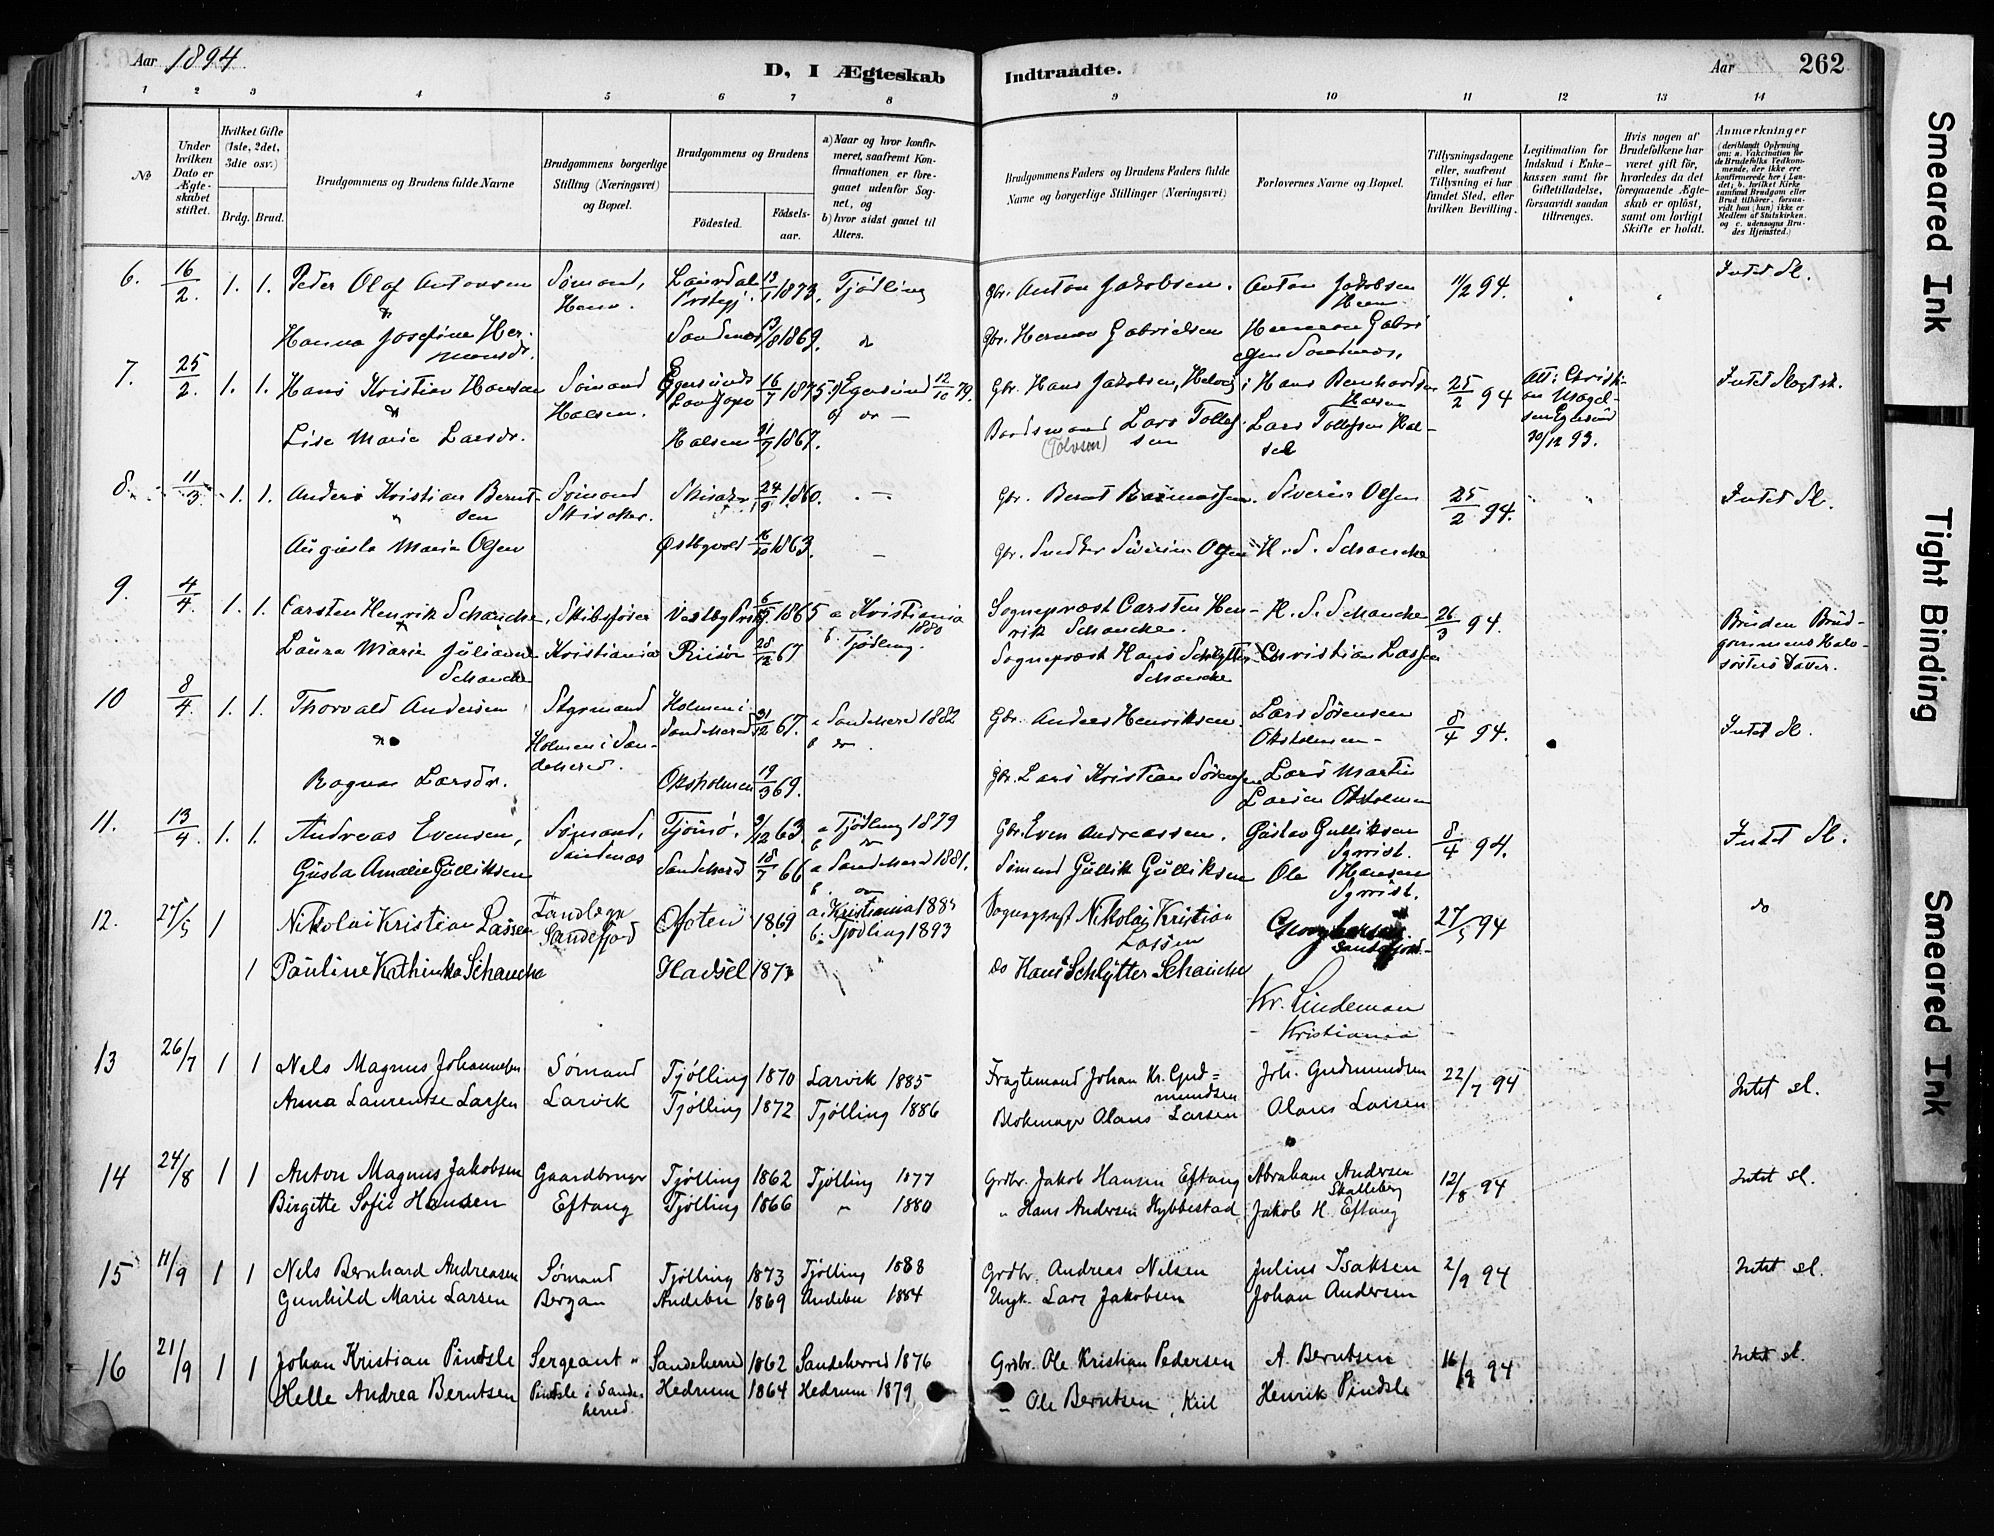 Aar 1894
D, I Ægteskab Indtraadte.
Aar 262
1 2 3 4 5 6 7 8 9 10 11 12 13 14
No
Under hvilken Dato er Ægteskabet stiftet.
Hvilket Gifte (1ste, 2det, 3die osv.)
Brdg. Brud.
Brudgommens og Brudens fulde Navne
Brudgommens borgerlige Stilling (Næringsvei) og Bopæl.
Brudgommens og Brudens
Fødested. Fødsels-aar.
a) Naar og hvor konfirmeret, saafremt Konfirmationen er foregaaet udenfor Sognet, og
b) hvor sidst gaaet til Alters.
Brudgommens Faders og Brudens Faders fulde Navne og borgerlige Stillinger (Næringsvei)
Forlovernes Navne og Bopæl.
Tillysningsdagene eller, saafremt Tillysning ei har fundet Sted, efter hvilken Bevilling.
Legitimation for Indskud i Enkekassen samt for Giftetilladelse, forsaavidt saadan tiltrænges.
Hvis nogen af Brudefolkene har været gift før, hvorledes da det foregaaende Ægteskab er opløst, samt om lovligt Skifte er holdt.
Anmærkninger
(deriblandt Oplysning om: a. Vakcination for de Brudefolks Vedkommende, der ikke ere konfirmerede her i Landet; b. hvilket Kirkesamfund Brudgom eller Brud tilhører, forsaavidt han (hun) ikke er Medlem af Statskirken, og c. udensogns Brudes Hjemsted.)
6. 16/2. 1. 1. Peder Olaf Antonsen Sømand, Laurdal 1873. Tjødling Gbr. Anton Jakobsen. Anton Jakobsen 11/2 94. Intet Sl.
Hanna Josefine Hermansdr. Sandnæs 1869. do Gbr. Herman Gabrielsen Herman Gabrielsen Sandnæs.
7. 25/2. 1. 1. Hans Kristian Hansen Sømand Egersunds Landsogn 16/7 1875 Egersund 12/10 79. Gbr. Hans Jakobsen, Hans Bernhardsen Halsen 25/2 94 Att: Christian Egersund 30/12 93. Intet Slægtsk.
Lise Marie Larsdr. Halsen. Halsen 1867. Baadsmand Lars Tollefsen (Tolvsen) Lars Tollefsen Halsen
8. 11/3. 1. 1. Anders Kristian Berntsen Sømand Skisaker. Skisaker 24/9 1860. — Gbr. Bernt Rasmussen. Severin Olsen 25/2 94. Intet Sl.
Augusta Marie Olsen Østbyvold 16/10 1863. — Gbr. Snedker Severin Olsen H. S. Schancke
9. 4/4. 1. 1. Carsten Henrik Schancke, Skibsfører Vestby 1865 a Kristiania 1880 Sogneprest Carsten Henrik Schancke. H. S. Schancke 26/3 94. Bruden Brudgommens Halvsøsters Datter.
Laura Marie Juliane Schancke Kristiania Risør 28/12 67 b. Tjødling. Sogneprest Hans Schlytter Schancke Christian Lassen
10 8/4. 1. 1. Thorvald Andersen Styrmand Holmen i Sandeherred Holmen i Sandeherred 31/12 67. a Sandeherred 1882 b do. Gbr. Anders Henriksen. Lars Sørensen Oksholmen 8/4 94. Intet Sl.
Ragna Larsdr. Oksholmen 19/3 69. Gbr. Lars Kristian Sørensen Lars Martin Larsen Oksholmen
11. 13/4. 1. 1. Andreas Evensen, Sømand, Sandnæs Tjømø. 9/12 63. a Tjødling 1879 b do Gbr. Even Andreassen. Gustav Gulliksen Syrrist. 8/4 94. Intet Sl.
Gusta Amalie Gulliksen Sandeherred 18/7 66 a Sandeherred 1881. b. do Sømand Gullik Gulliksen Ole Hansen Syrrist.
12. 27/5 1 Nikolai Kristian Lassen Tandlæge Sandefjord Ofoten 1869 a: Kristiania 1885 b: Tjødling 1893 Sogneprest Nikolai Kristian Lassen Georg Sandefjord 27/5 94 do
1 Pauline Kathinka Schancke Hadsel 187 do Hans Schlytter Schancke
Kr. Lindeman Kristiania
13 26/7 1 1 Nils Magnus Johannesen Sømand Tjølling 1870 Larvik 1885 Fragtemand Johan Kr. Gudmundsen Joh. Gudmundsen 22/7 94 Intet sl.
Anna Laurentse Larsen Larvik Tjølling 1872 Tjølling 1886 Blokmager Alans Larsen Alans Larsen
14 24/8 1 1 Anton Magnus Jakobsen Gaardbruger Tjølling 1862 Tjølling 1877 Grdbr. Jakob Hansen Eftang Abraham Andersen Skalleberg 12/8 94 Intet sl.
Birgitte Sofie Hansen Eftang Tjølling 1866 " 1880 " Hans Andersen Hybbestad Jakob H. Eftang
15 11/9 1 1 Nils Bernhard Andreasen Sømand Tjølling 1873 Tjølling 1888 Grdbr. Andreas Nilsen Julius Isaksen 2/9 94 Intet sl.
Gunhild Marie Larsen Bergan Andebu 1869 Andebu 1884 Ungk. Lars Jakobsen Johan Andersen
16 21/9 1 1 Johan Kristian Pindsle Sergeant Sandeherred 1862 Sandeherred 1876 Grdbr. Ole Kristian Pedersen A. Berntsen 16/9 94 Intet sl.
Helle Andrea Berntsen Pindsle i Sandeherred Hedrum 1864 Hedrum 1879 " Ole Berntsen, Kiil Henrik Pindsle
Smeared Ink
Tight Binding
Smeared Ink